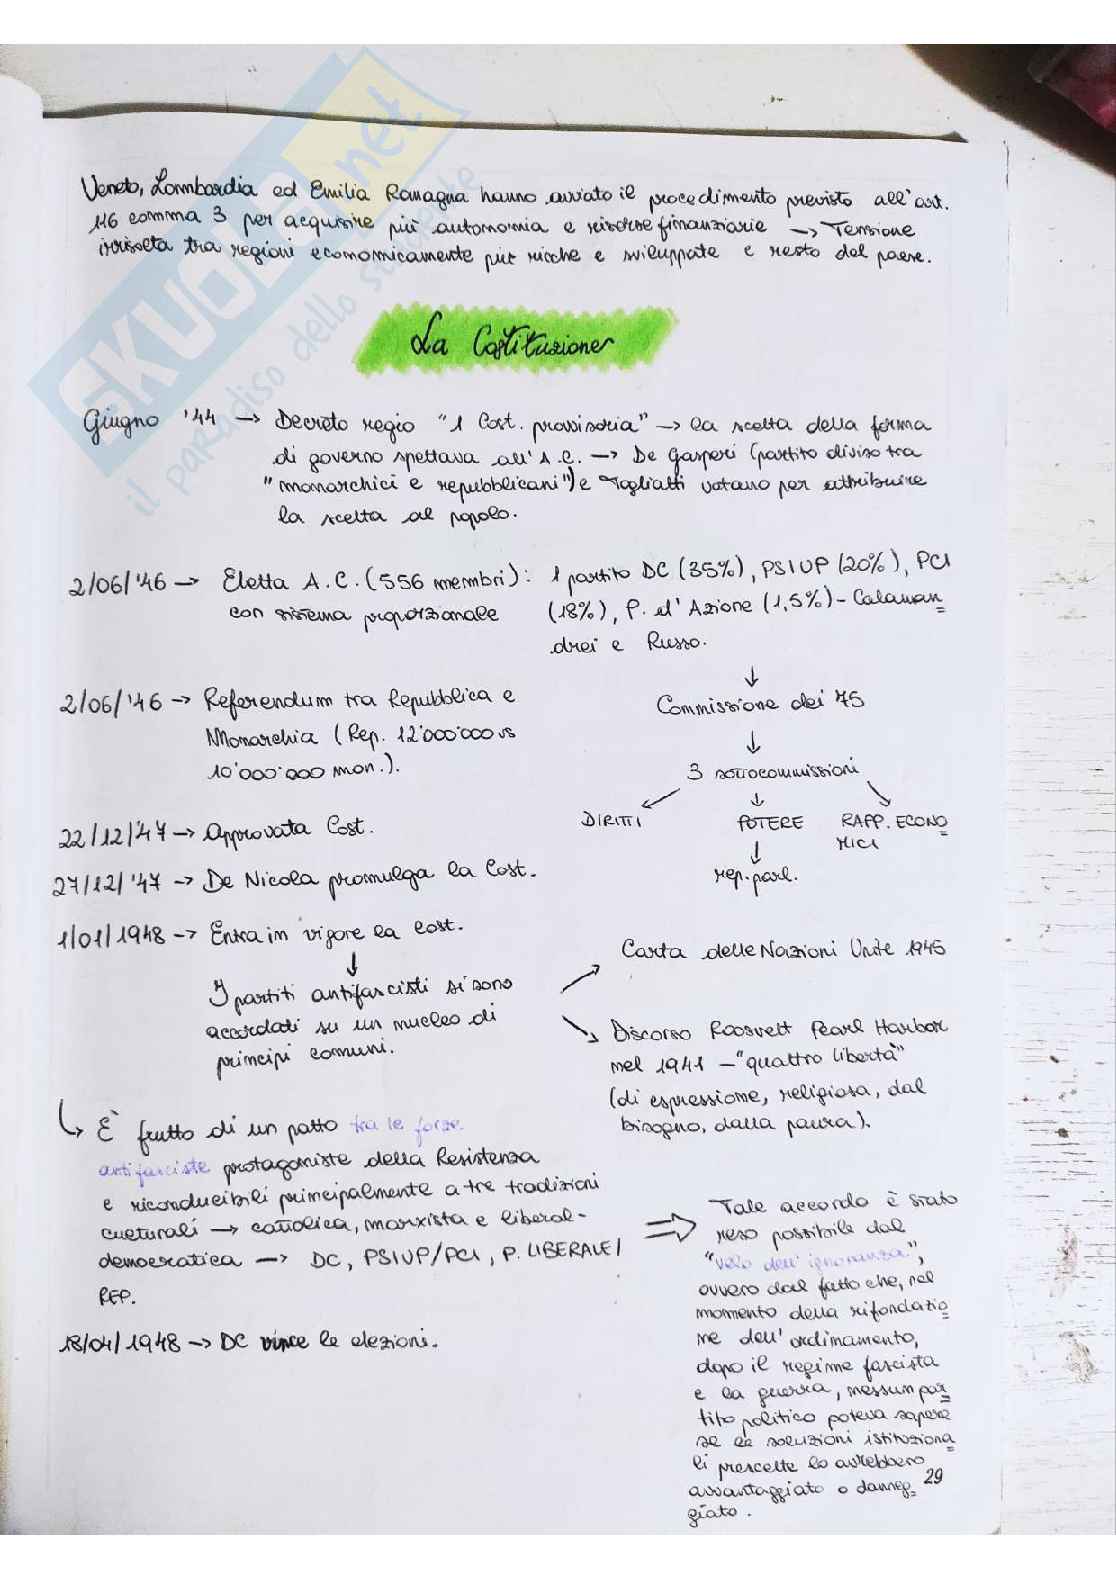 SKUOLA.net
il paradiso dello studente
Veneto, Lombardia ed Emilia Romagna hanno avviato il procedimento previsto all'art.
116 comma 3 per acquisire più autonomia e risorse finanziarie → Tensione
irrisolta tra regioni economicamente più ricche e sviluppate e resto del paese.
La Costituzione
Giugno '44 → Decreto regio "1 Cost. provvisoria" → la scelta della forma
di governo spettava all'A.C. → De Gasperi (partito diviso tra
"monarchici e repubblicani") e Togliatti votano per attribuire
la scelta al popolo.
2/06/'46 → Eletta A.C. (556 membri): 1 partito DC (35%), PSIUP (20%), PCI
con sistema proporzionale (18%), P. d'Azione (1,5%) - Calaman=
drei e Russo.
↓
Commissione dei 75
↓
3 sottocommissioni
DIRITTI POTERE RAPP. ECONO=
MICI
↓
rep. parl.
2/06/'46 → Referendum tra Repubblica e
Monarchia (Rep. 12'000'000 vs
10'000'000 mon.).
22/12/'47 → Approvata Cost.
27/12/'47 → De Nicola promulga la Cost.
1/01/1948 → Entra in vigore la cost.
↓
I partiti antifascisti si sono
accordati su un nucleo di
principi comuni.
Carta delle Nazioni Unite 1945
Discorso Roosvelt Pearl Harbor
nel 1941 - "quattro libertà"
(di espressione, religiosa, dal
bisogno, dalla paura).
↳ È frutto di un patto tra le forze
antifasciste protagoniste della Resistenza
e riconducibili principalmente a tre tradizioni
culturali → cattolica, marxista e liberal-
democratica → DC, PSIUP/PCI, P. LIBERALE/
REP.
18/04/1948 → DC vince le elezioni.
⇒ Tale accordo è stato
reso possibile dal
"velo dell'ignoranza",
ovvero dal fatto che, nel
momento della rifondazio=
ne dell'ordinamento,
dopo il regime fascista
e la guerra, nessun par=
tito politico poteva sapere
se le soluzioni istituziona=
li prescelte lo avrebbero
avvantaggiato o danneg=
giato.
29